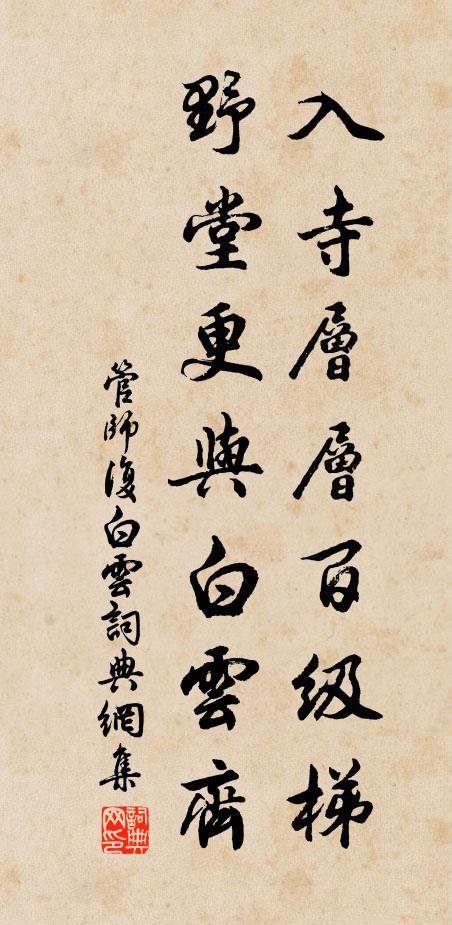 入寺層層百级梯
野堂更與白雲齊
管師復白雲詞典網集
詞典网印